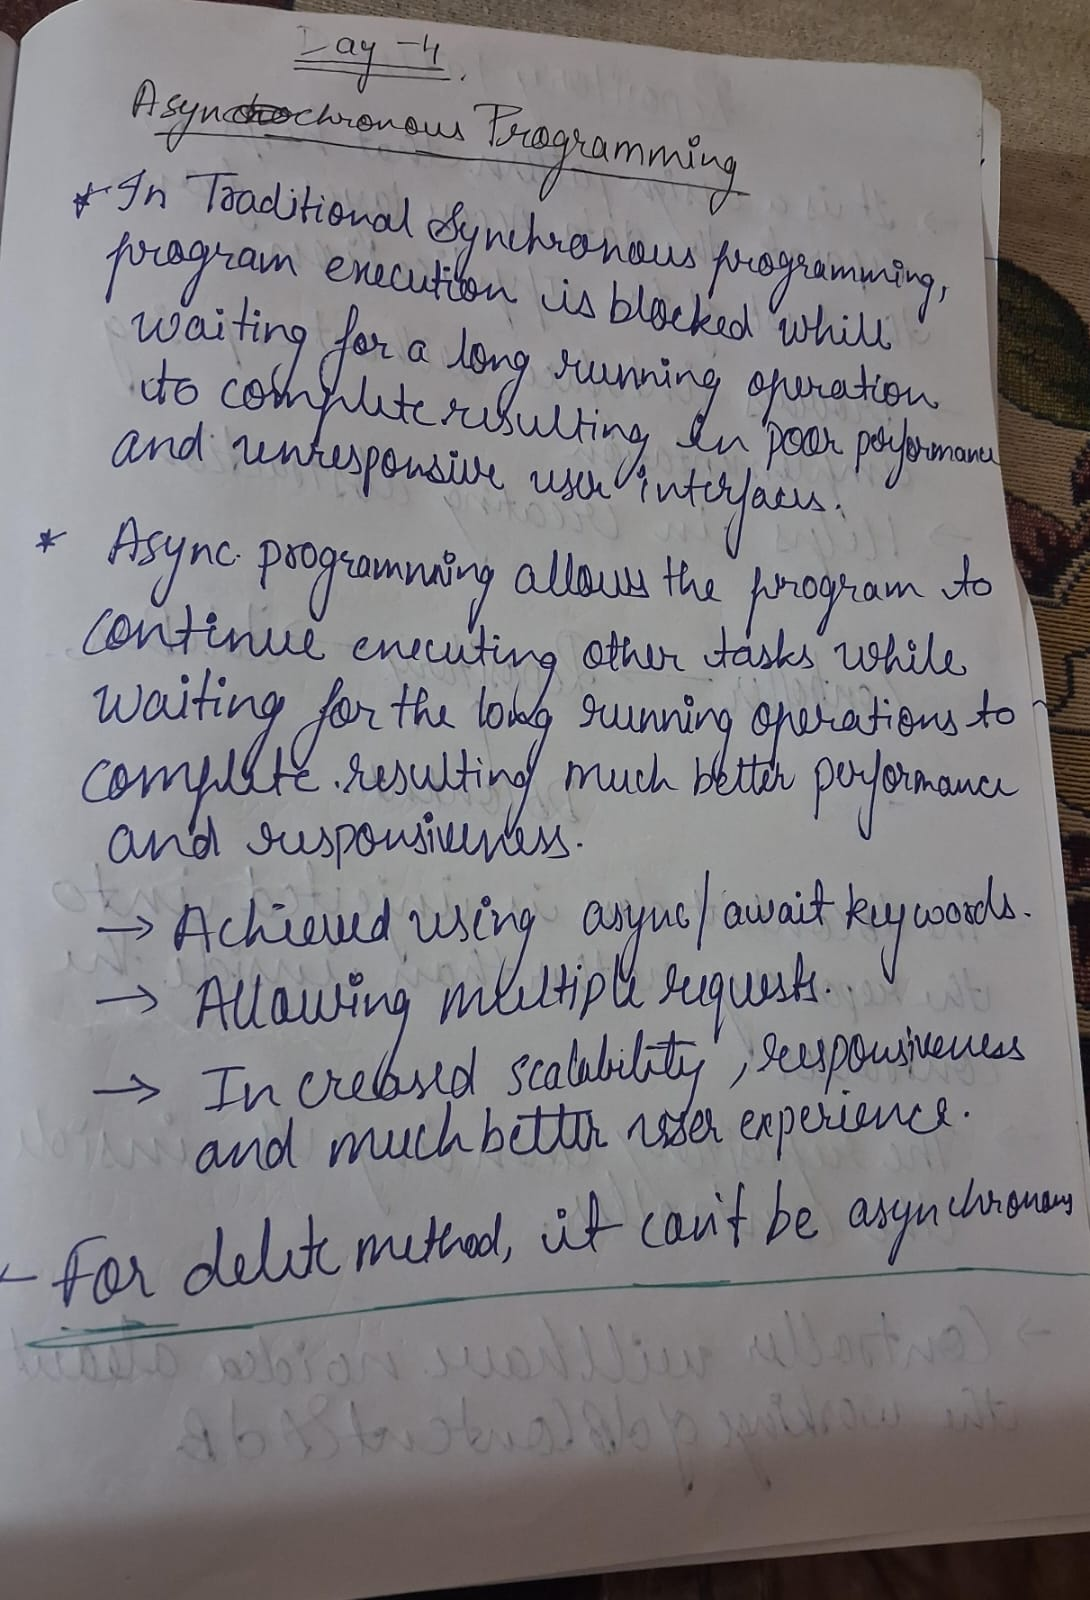 Day - 4.
Asynchronous Programming
* In Traditional Synchronous programming,
program execution is blocked while
waiting for a long running operation
to complete resulting in poor performance
and unresponsive user interfaces.
* Async programming allows the program to
continue executing other tasks while
waiting for the long running operations to
complete. resulting much better performance
and responsiveness.
→ Achieved using async/await keywords.
→ Allowing multiple requests.
→ Increased scalability, responsiveness
and much better user experience.
- For delete method, it can't be asynchronous